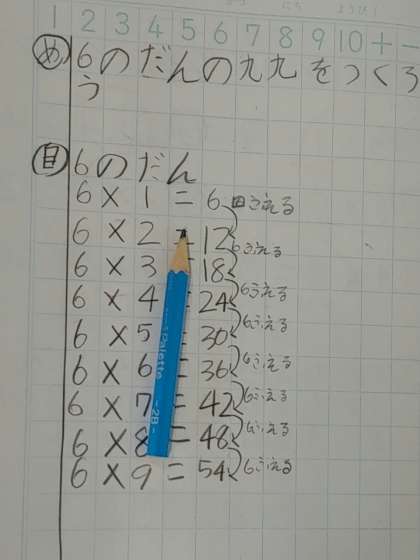 1 2 3 4 5 6 7 8 9 10 十 一
め 6のだんの九九をつくろ
う
自 6のだん
6×1=6
6ふえる
6×2=12
6ふえる
6×3=18
6ふえる
6×4=24
6ふえる
6×5=30
6ふえる
6×6=36
6ふえる
6×7=42
6ふえる
6×8=48
6ふえる
6×9=54
Palette
2B